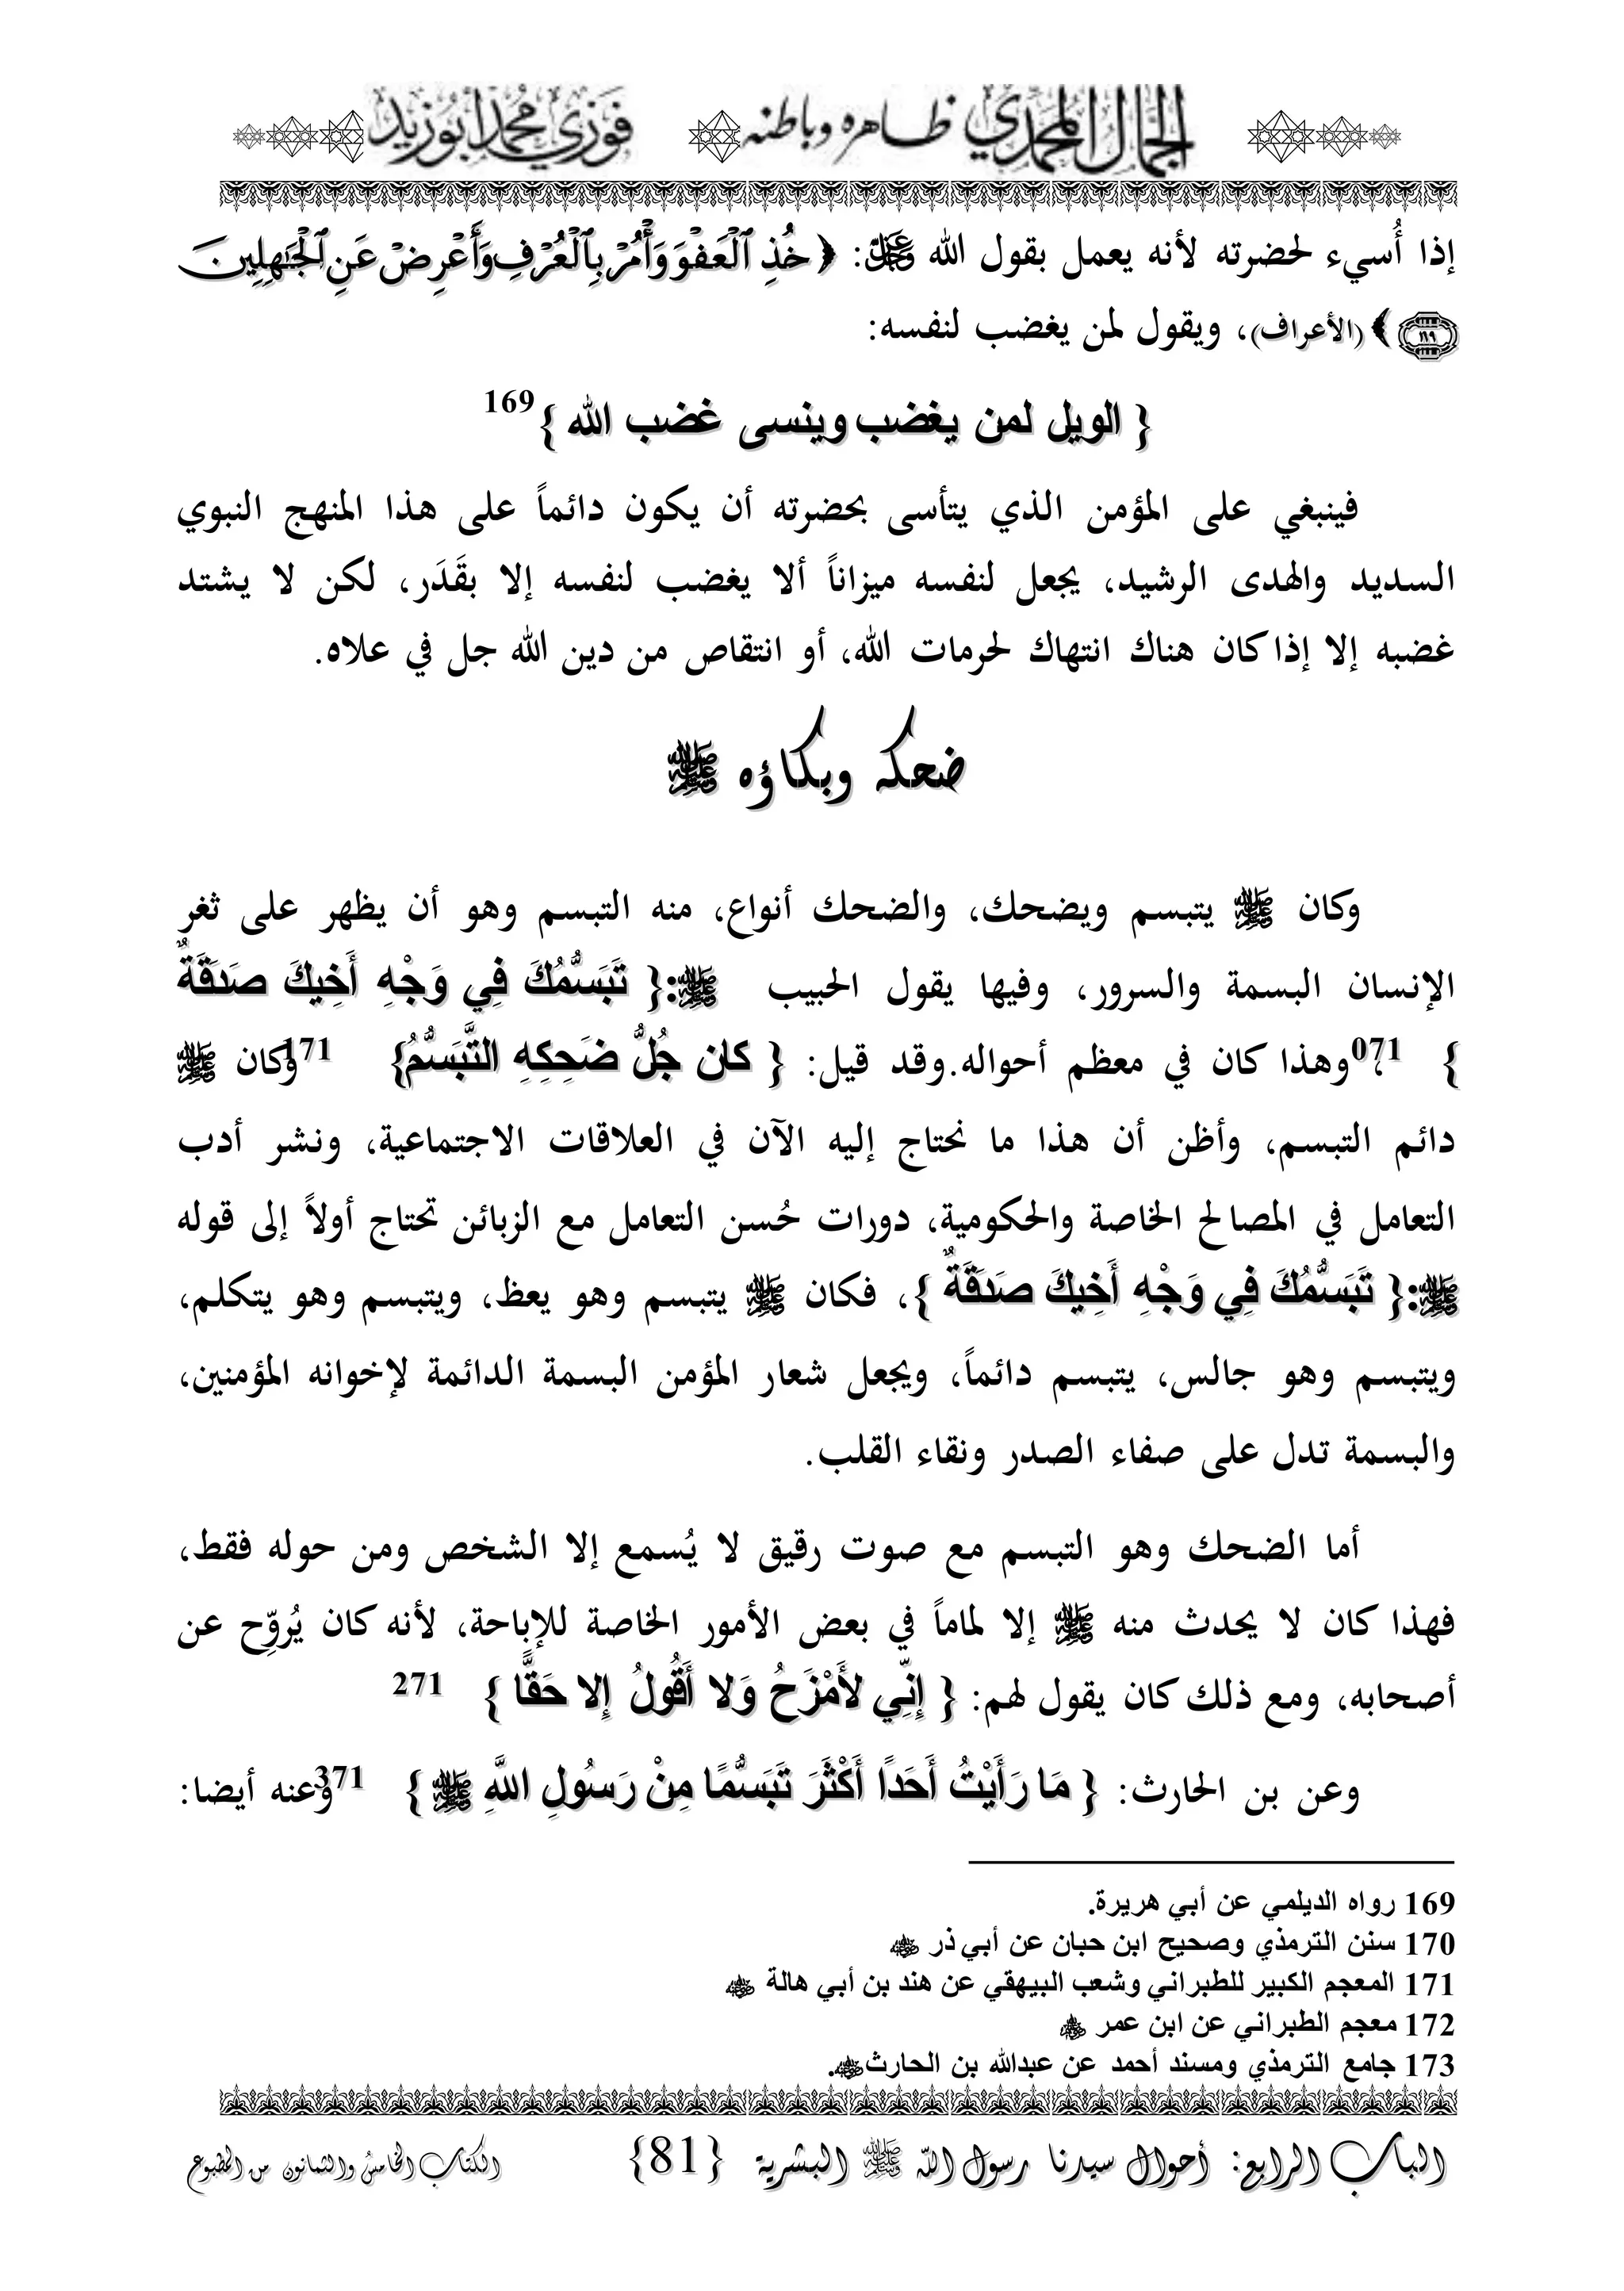 الجمال المحمدي ظاهره وباطنه فوزي محمد أبوزيد
إذا أُسيء لحضرته لأنه يعمل بقول الله ﷿: ﴿ خُذِ ٱلۡعَفۡوَ وَأۡمُرۡ بِٱلۡعُرۡفِ وَأَعۡرِضۡ عَنِ ٱلۡجَٰهِلِينَ
١٩٩ ﴾ (الأعراف)، ويقول لمن يغضب لنفسه:
{ الويل لمن يغضب وينسى غضب الله }169
فينبغي على المؤمن الذي يتأسى بحضرته أن يكون دائماً على هذا المنهج النبوي
السديد والهدى الرشيد، يجعل لنفسه ميزاناً ألا يغضب لنفسه إلا بقَدَر، لكن لا يشتد
غضبه إلا إذا كان هناك انتهاك لحرمات الله، أو انتقاص من دين الله جل في علاه.
ضحكه وبكاؤه ﷺ
وكان ﷺ يتبسم ويضحك، والضحك أنواع، منه التبسم وهو أن يظهر على ثغر
الإنسان البسمة والسرور، وفيها يقول الحبيب ﷺ:{ تَبَسُّمُكَ فِي وَجْهِ أَخِيكَ صَدَقَةٌ
} 071، وهذا كان في معظم أحواله.وقد قيل: { كان جُلُّ ضَحِكِهِ التَّبَسُّمُ} 171 وكان ﷺ
دائم التبسم، وأظن أن هذا ما نحتاج إليه الآن في العلاقات الاجتماعية، ونشر أدب
التعامل في المصالح الخاصة والحكومية، دورات حُسن التعامل مع الزبائن تحتاج أولاً إلى قوله
ﷺ:{ تَبَسُّمُكَ فِي وَجْهِ أَخِيكَ صَدَقَةٌ }، فكان ﷺ يتبسم وهو يعظ، ويتبسم وهو يتكلم،
ويتبسم وهو جالس، يتبسم دائماً، ويجعل شعار المؤمن البسمة الدائمة لإخوانه المؤمنين،
والبسمة تدل على صفاء الصدر ونقاء القلب.
أما الضحك وهو التبسم مع صوت رقيق لا يُسمع إلا الشخص ومن حوله فقط،
فهذا كان لا يحدث منه ﷺ إلا لماماً في بعض الأمور الخاصة للإباحة، لأنه كان يُروِّح عن
أصحابه، ومع ذلك كان يقول لهم: { إِنِّي لأَمْزَحُ وَلا أَقُولُ إِلا حَقًّا } 271
وعن بن الحارث: { مَا رَأَيْتُ أَحَدًا أَكْثَرَ تَبَسُّمًا مِنْ رَسُولِ اللَّهِ ﷺ } 371 وعنه أيضا:
169 رواه الديلمي عن أبي هريرة.
170 سنن الترمذي وصحيح ابن حبان عن أبي ذر
171 المعجم الكبير للطبراني وشعب البيهقي عن هند بن أبي هالة
172 معجم الطبراني عن ابن عمر
173 جامع الترمذي ومسند أحمد عن عبدالله بن الحارث.
الباب الرابع: أحوال سيدنا رسول الله ﷺ البشرية {81} الكتاب الخامس والثمانون من المطبوع